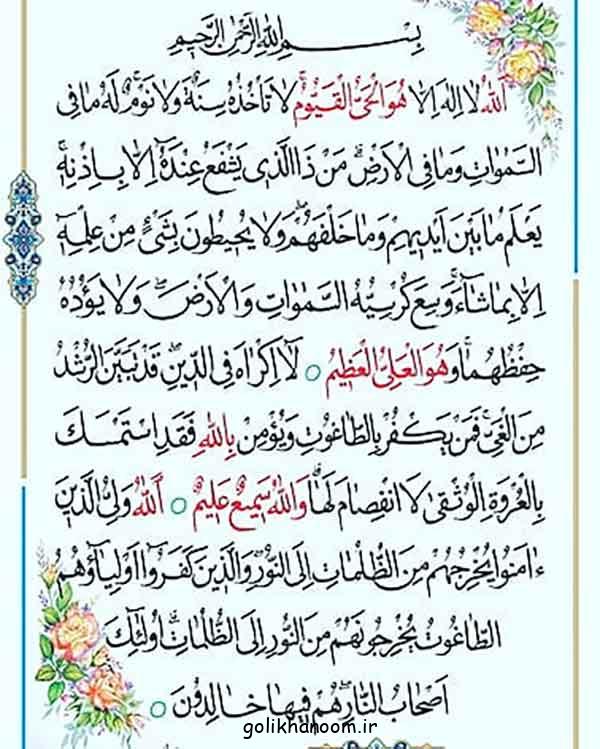 بِسْمِ اللهِ الرَّحْمٰنِ الرَّحيمِ
اَللهُ لا اِلٰهَ اِلّا هُوَ الْحَيُّ الْقَيُّومُ لا تَأْخُذُهُ سِنَةٌ وَلا نَوْمٌ لَهُ ما فِي
السَّمٰواتِ وَما فِي الْاَرْضِ مَنْ ذَا الَّذي يَشْفَعُ عِنْدَهُ اِلّا بِاِذْنِهِ
يَعْلَمُ ما بَيْنَ اَيْديهِمْ وَما خَلْفَهُمْ وَلا يُحيطُونَ بِشَيْءٍ مِنْ عِلْمِهِ
اِلّا بِما شاءَ وَسِعَ كُرْسِيُّهُ السَّمٰواتِ وَالْاَرْضَ وَلا يَؤُدُهُ
حِفْظُهُما وَهُوَ الْعَلِيُّ الْعَظيمُ ○ لا اِكْراهَ فِي الدّينِ قَدْ تَبَيَّنَ الرُّشْدُ
مِنَ الْغَيِّ فَمَنْ يَكْفُرْ بِالطّاغُوتِ وَيُؤْمِنْ بِاللهِ فَقَدِ اسْتَمْسَكَ
بِالْعُرْوَةِ الْوُثْقىٰ لَا انْفِصامَ لَها وَاللهُ سَميعٌ عَليمٌ ○ اَللهُ وَلِيُّ الَّذينَ
ءامَنُوا يُخْرِجُهُمْ مِنَ الظُّلُماتِ اِلَى النُّورِ وَالَّذينَ كَفَرُوا اَوْلِياؤُهُمُ
الطّاغُوتُ يُخْرِجُونَهُمْ مِنَ النُّورِ اِلَى الظُّلُماتِ اُولٰئِكَ
اَصْحابُ النّارِ هُمْ فيها خالِدُونَ ○
golikhanoom.ir